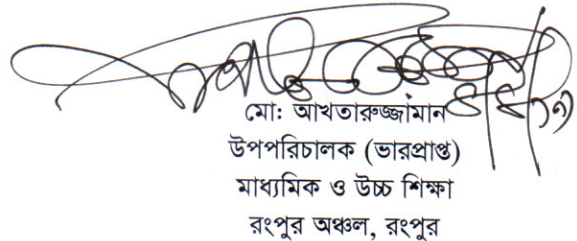 মো: আখতারুজ্জামান
উপপরিচালক (ভারপ্রাপ্ত)
মাধ্যমিক ও উচ্চ শিক্ষা
রংপুর অঞ্চল, রংপুর